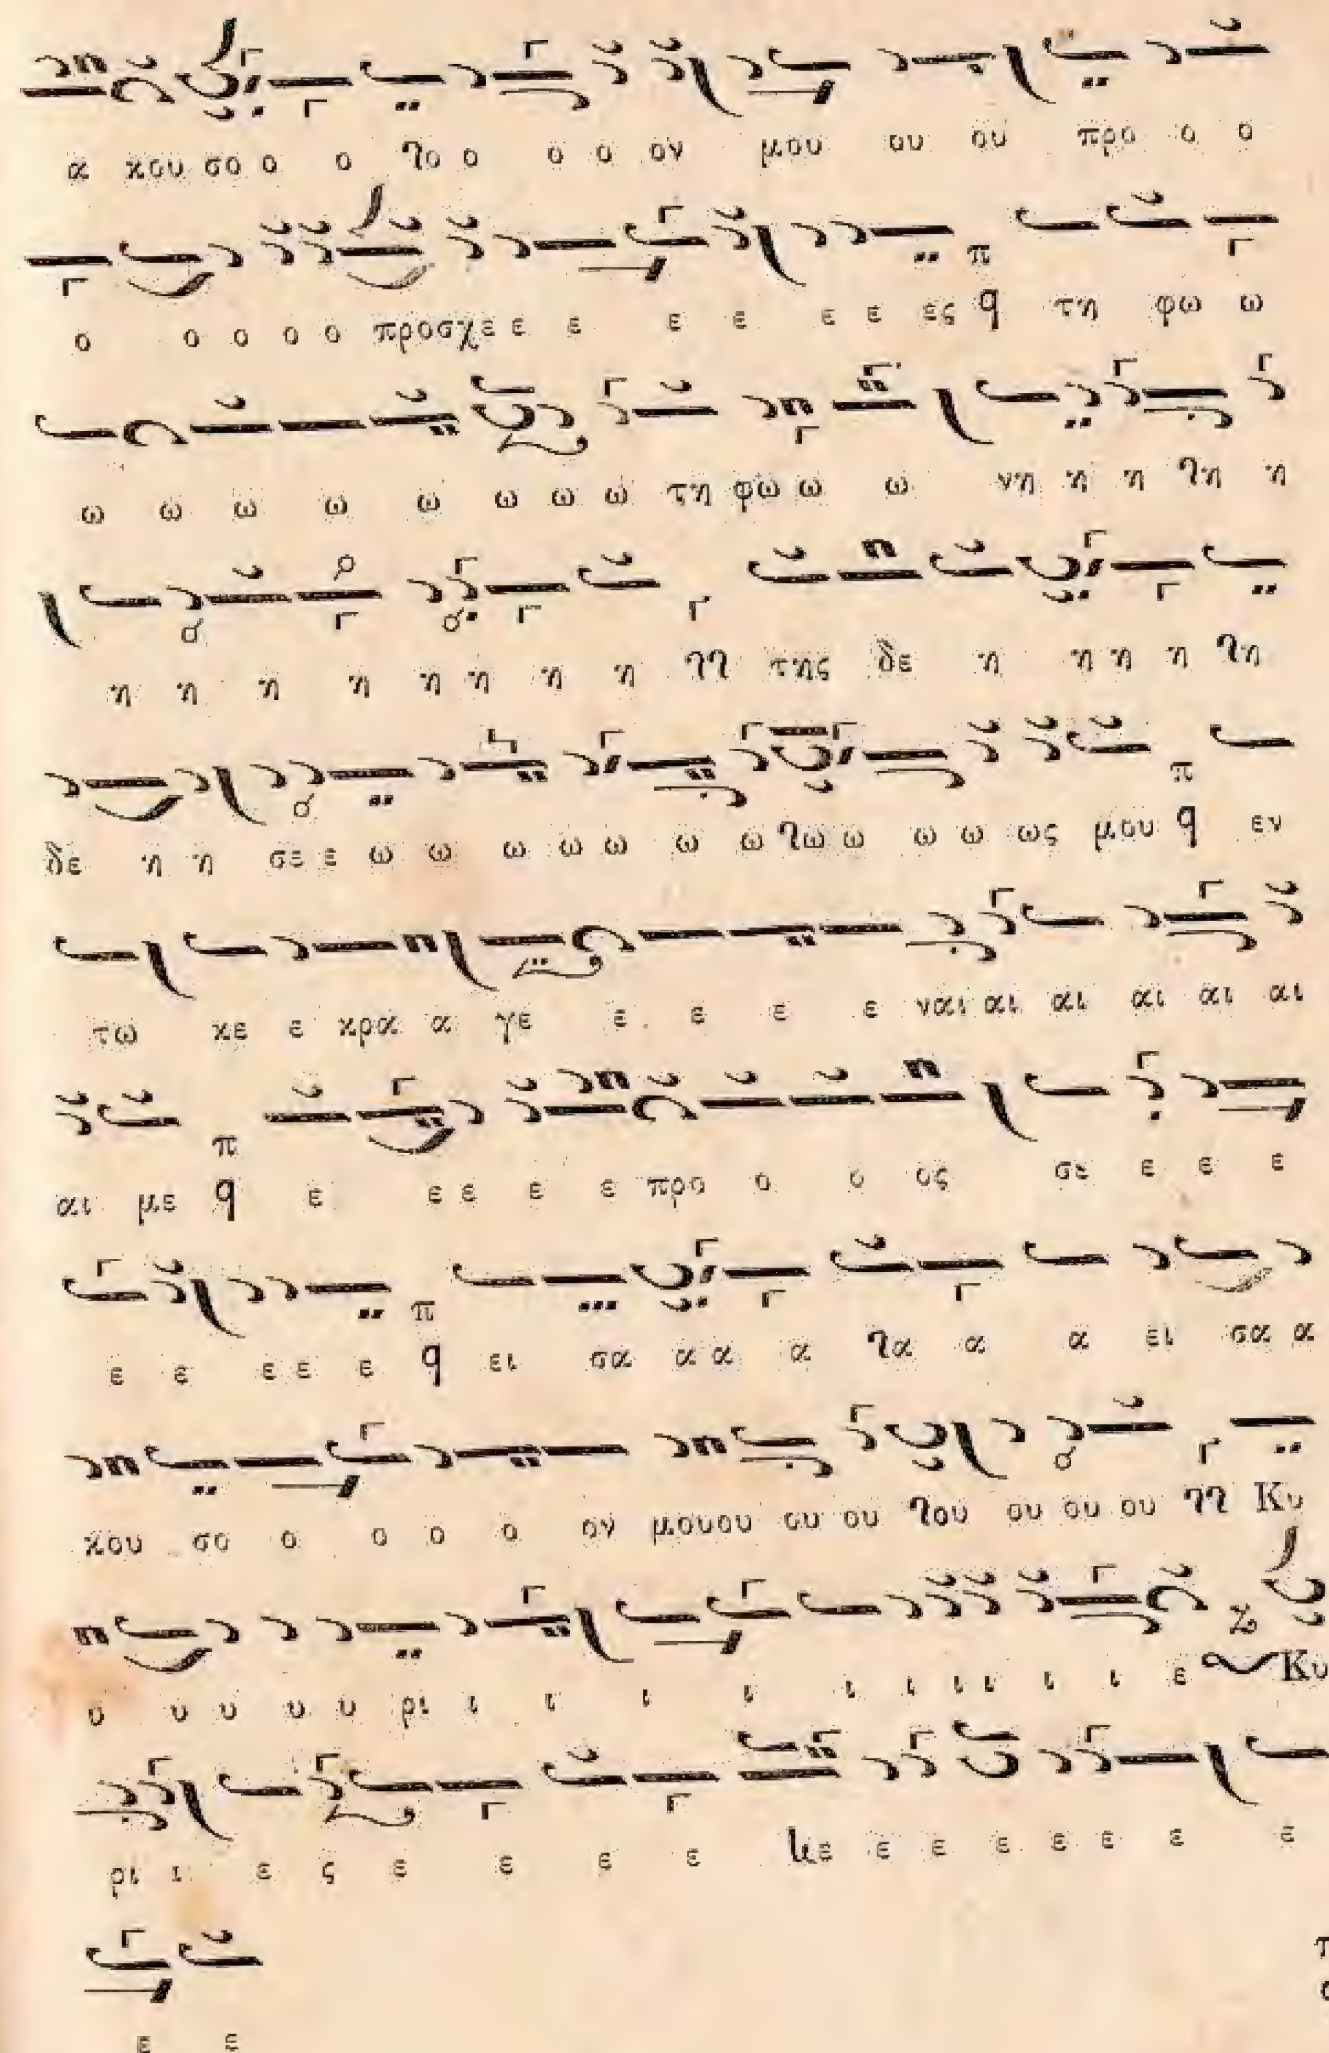 α κου σο ο ο ϡο ο ο ο ον μου ου ου προ ο ο
ο ο ο ο ο προσχε ε ε ε ε ε ε ες π q τη φω ω
ω ω ω ω ω ω ω ω τη φω ω ω νη η η ϡη η
η η η η η η η η ϡϡ της δε η η η η ϡη
δε η η σε ε ε ω ω ω ω ω ω ω ϡω ω ω ω ως μου π q εν
τω κε ε κρα α γε ε ε ε ε ναι αι αι αι αι αι
αι με π q ε ε ε ε ε προ ο ο ος σε ε ε ε
ε ε ε ε ε π q ει σα α α α ϡα α α ει σα α
κου σο ο ο ο ο ον μουου ου ου ϡου ου ου ου ϡϡ Κυ
υ υ υ υ υ ρι ι ι ι ι ι ι ι ι ι ι ε Κυ
ρι ι ε ς ε ε ε ε ε ε ε ε ε ε ε
ε ε